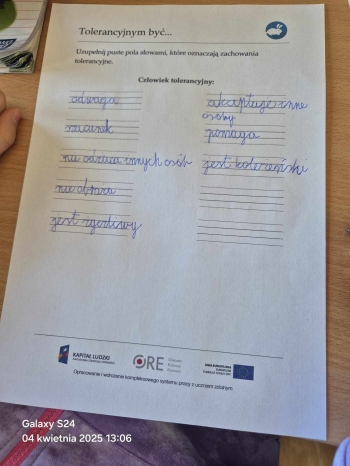 Tolerancyjnym być...
Uzupełnij puste pola słowami, które oznaczają zachowania
tolerancyjne.
Człowiek tolerancyjny:
odwaga
akceptuje inne
osoby
szacunek
pomaga
nie odrzuca innych osób
jest koleżeński
nie obraża
jest życzliwy
KAPITAŁ LUDZKI
ORE
UNIA EUROPEJSKA
Opracowanie i wdrożenie kompleksowego systemu pracy z uczniem zdolnym
Galaxy S24
04 kwietnia 2025 13:06